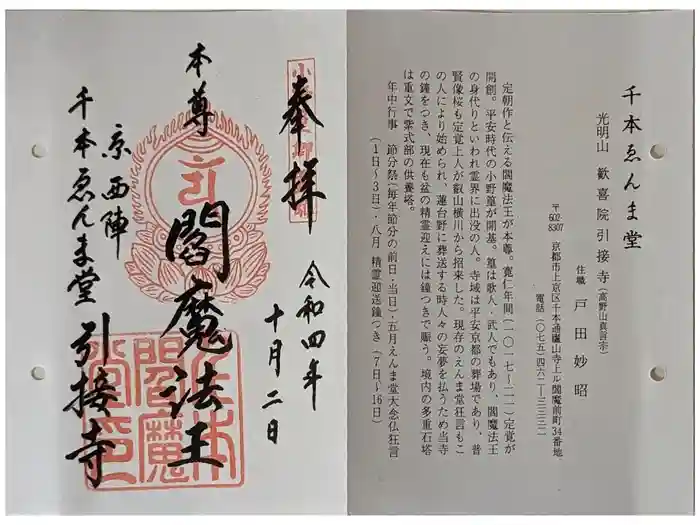 奉拝
令和四年
十月二日
本尊
閻魔法王
京西陣
千本ゑんま堂
引接寺
千本ゑんま堂
光明山 歓喜院引接寺(高野山真言宗)
住職 戸田妙昭
〒602-8307 京都市上京区千本通廬山寺上ル閻魔前町34番地
電話(〇七五)四六二―三三三二
定朝作と伝える閻魔法王が本尊。寛仁年間(一〇一七~二一)定覚が
開創。平安時代の小野篁が開基。篁は歌人・武人でもあり、閻魔法王
の身代りといわれ霊界に出没の人。寺域は平安京都の葬場であり、普
賢像桜も定覚上人が叡山横川から招来した。現存のえんま堂狂言もこ
の人により始められ、蓮台野に葬送する時人々の妄夢を払うため当寺
の鐘をつき、現在も盆の精霊迎えには鐘つきで賑う。境内の多重石塔
は重文で紫式部の供養塔。
年中行事 節分祭(毎年節分の前日・当日)・五月えんま堂大念仏狂言
(1日~3日)・八月 精霊迎送鐘つき(7日~16日)